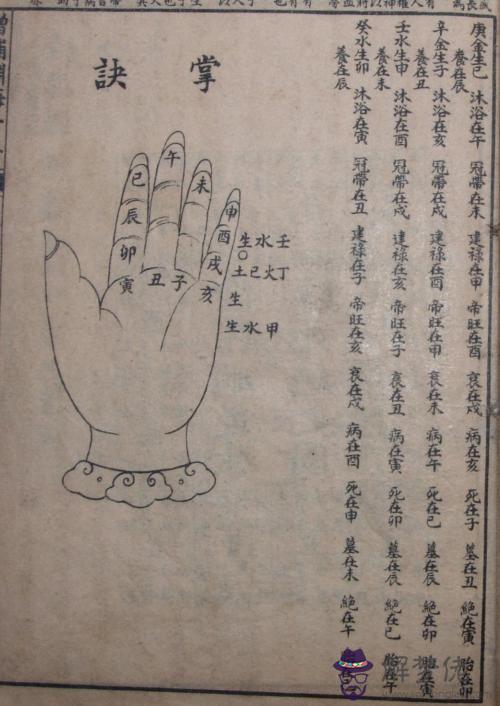 庚金生巳 沐浴在午 冠帶在未 建祿在申 帝旺在酉 衰在戌 病在亥 死在子 墓在丑 絕在寅 胎在卯
養在辰
辛金生子 沐浴在亥 冠帶在戌 建祿在酉 帝旺在申 衰在未 病在午 死在巳 墓在辰 絕在卯 胎在寅
養在丑
壬水生申 沐浴在酉 冠帶在戌 建祿在亥 帝旺在子 衰在丑 病在寅 死在卯 墓在辰 絕在巳 胎在午
養在未
癸水生卯 沐浴在寅 冠帶在丑 建祿在子 帝旺在亥 衰在戌 病在酉 死在申 墓在未 絕在午
養在辰
掌訣
午
未
巳
申
辰
酉
卯
戌
寅
丑
子
亥
壬水生
丁火巳土
生
甲水生
解梦佬